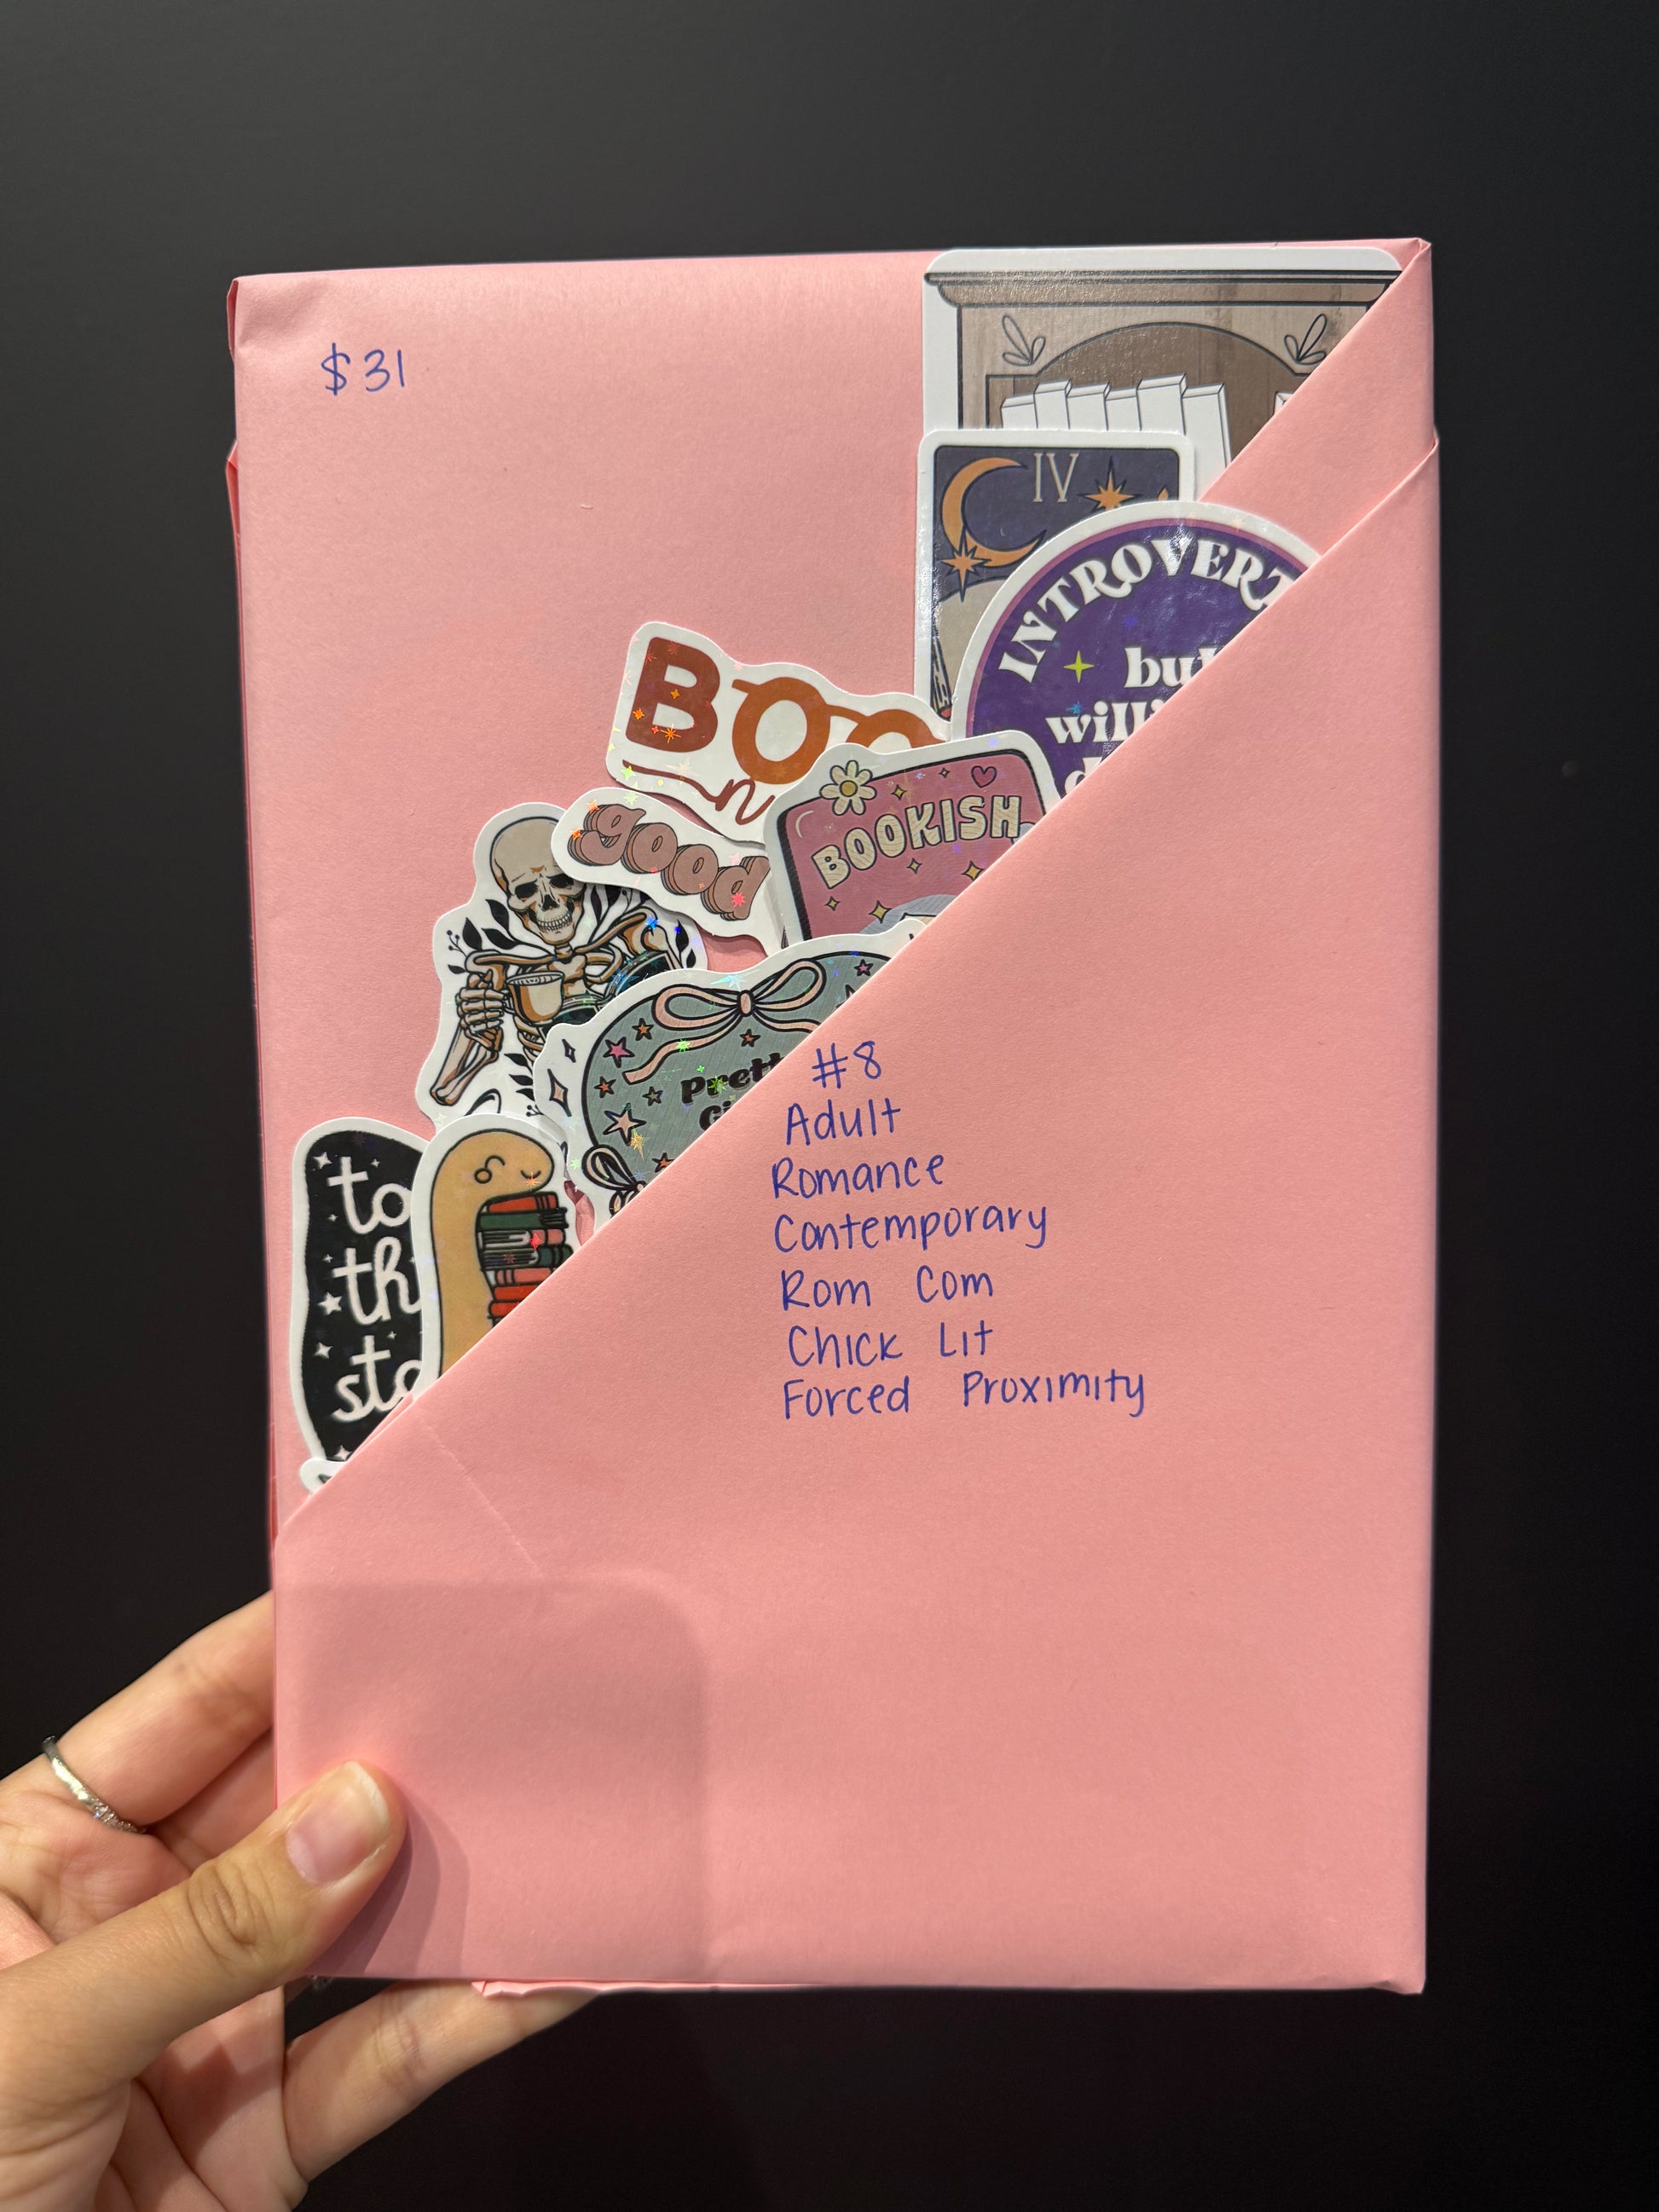 $31
IV
INTROVERT
but
good
BOOKISH
to
#8
Adult
Romance
Contemporary
Rom Com
Chick Lit
Forced Proximity